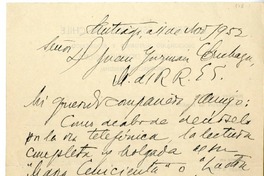 Santiago, 4 de Nov/1952
Señor
D Juan Guzmán Cruchaga,
M. d R R. E E.
Mi querido compañero y amigo:
Como acabo de decírselo
por la vía telefónica, la lectura
completa y holgada de su
"María Cenicienta" o "La otra